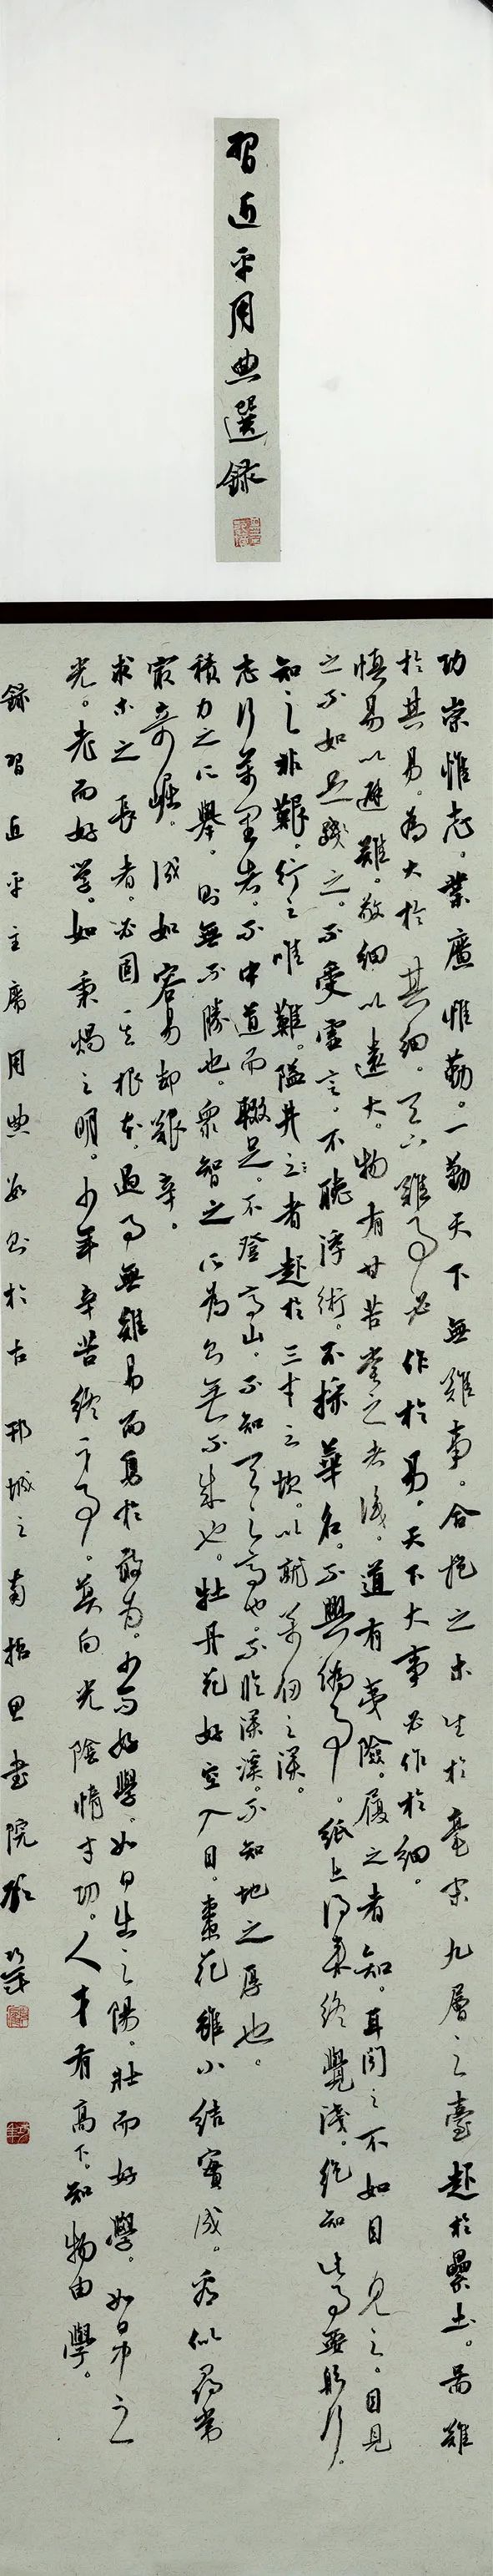 習近平用典選録
功崇惟志。業廣惟勤。一勤天下無難事。合抱之木生於毫末九層之臺起於壘土。啚難
於其易。為大於其細。天下難事必作於易。天下大事必作於細。
慎易以避難。敬細以遠大。物有甘苦嘗之者識。道有夷險。履之者知。耳聞之不如目見之。目見
之不如足踐之。不受虛言。不聽浮術。不採華名。不興偽事。紙上得來終覺淺。絕知此事要躬行。
知之非艱。行之唯難。隘井之者起於三寸之坎。以就萬仞之深。
志行萬里者。不中道而輟足。不登高山。不知天之高也。不臨深溪。不知地之厚也。
積力之所舉。則無不勝也。衆智之所為則無不成也。牡丹花好空入目。棗花雖小結實成。看似尋常
最奇崛。成如容易却艱辛。
求木之長者。必固其根本。遇事無難易而勇於敢為。少而好學。如日出之陽。壯而好學。如日中之
光。老而好学。如秉燭之明。少年辛苦終身事。莫向光陰惰寸功。人才有高下。知物由學。
録習近平主席用典數則於古邗城之南